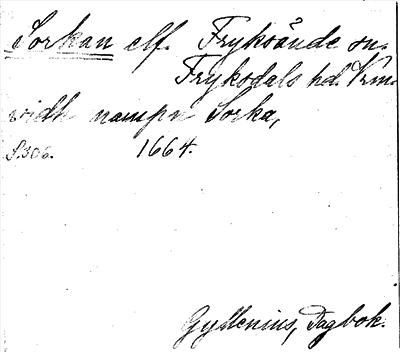 Sorkan elf. Fryksände sn.
Fryksdals hd. Vrm.
widh nampn Sorka,
S. 306. 1664.
Gyllenius, Dagbok.